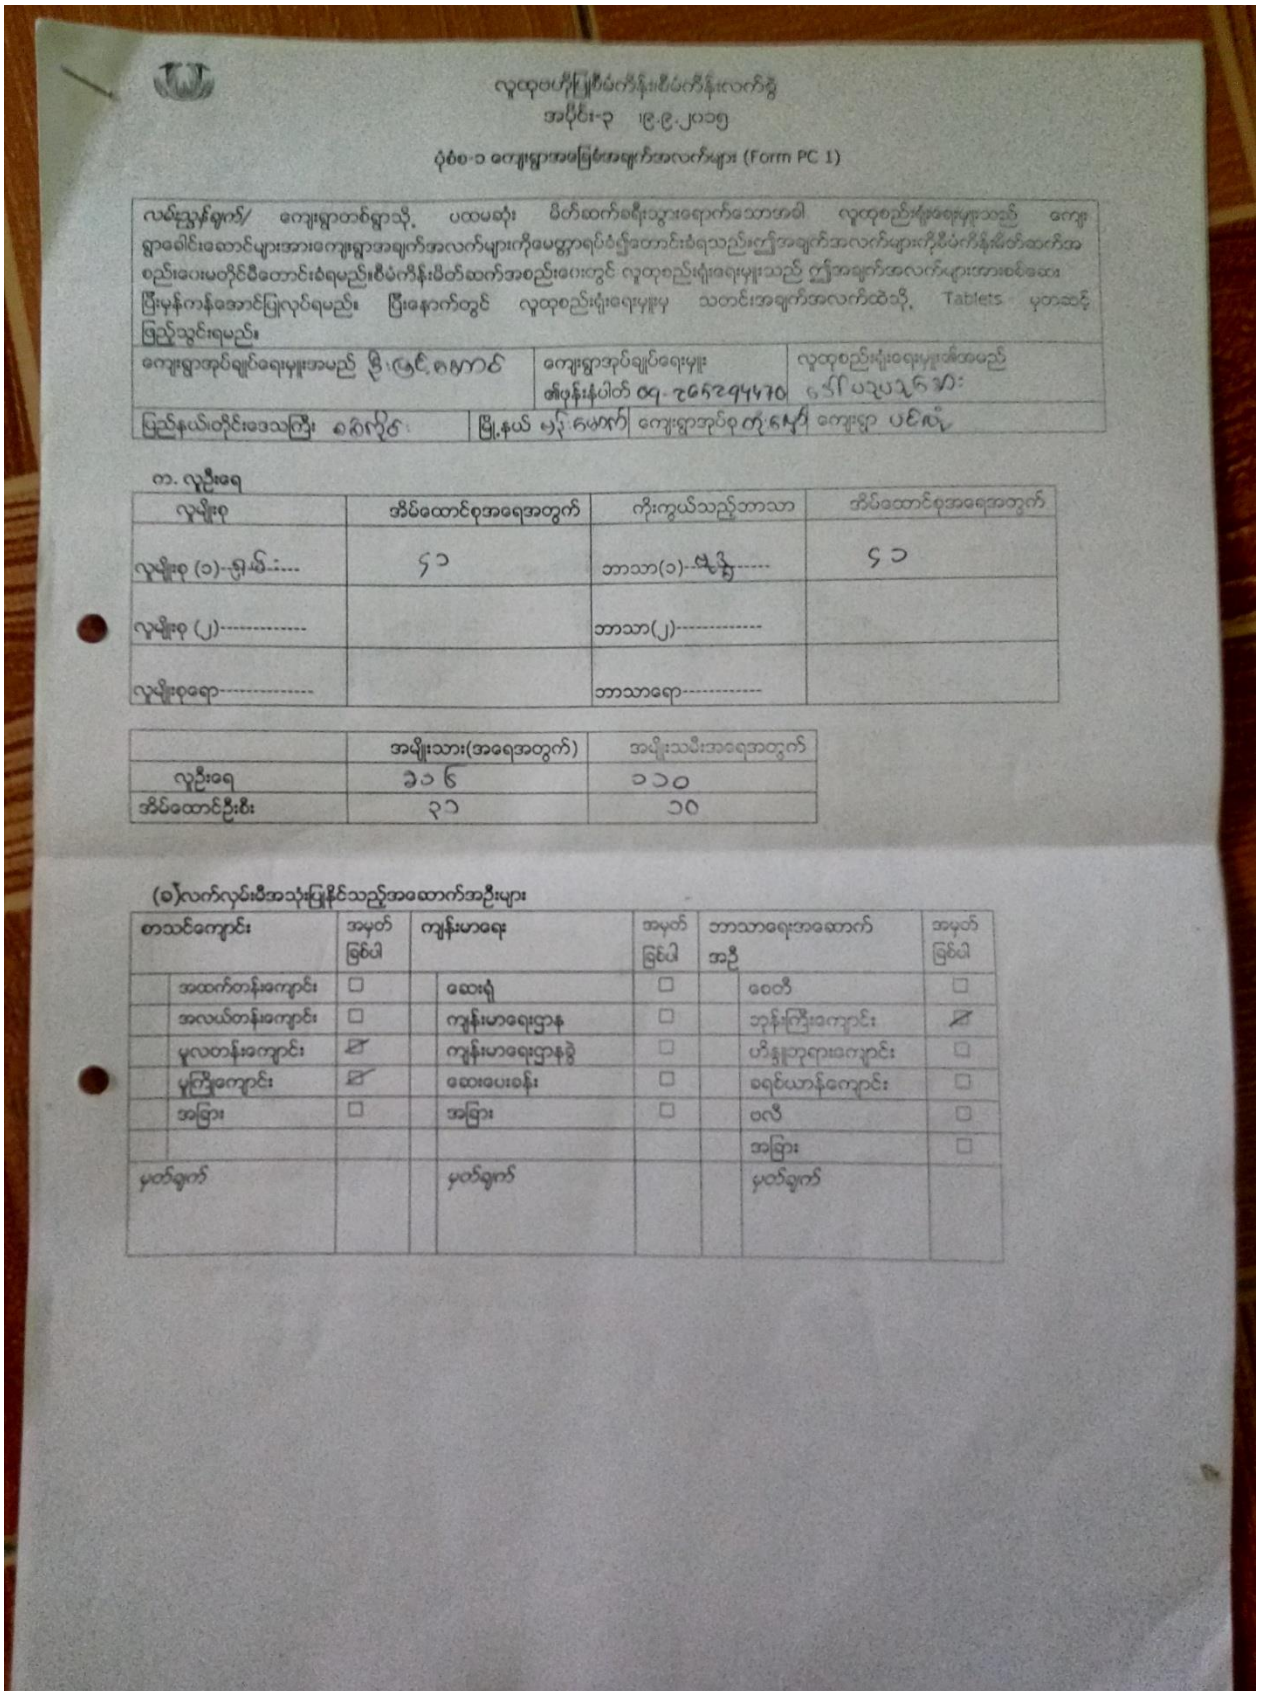 လူထုဗဟိုပြုစီမံကိန်း၊စီမံကိန်းလက်စွဲ
အပိုင်း-၃ ၊၉.၉.၂၀၁၅
ပုံစံစ-၁ ကျေးရွာအခြေခံအချက်အလက်များ (Form PC 1)
လမ်းညွှန်ချက်/ ကျေးရွာတစ်ရွာသို့ ပထမဆုံး မိတ်ဆက်ခရီးသွားရောက်သောအခါ လူထုစည်းရုံးရေးမှူးသည် ကျေး
ရွာခေါင်းဆောင်များအားကျေးရွာအချက်အလက်များကိုမေတ္တာရပ်ခံ၍တောင်းခံရသည်။ဤအချက်အလက်များကိုစီမံကိန်းမိတ်ဆက်အ
စည်းဝေးမတိုင်မီတောင်းခံရမည်။စီမံကိန်းမိတ်ဆက်အစည်းဝေးတွင် လူထုစည်းရုံးရေးမှူးသည် ဤအချက်အလက်များအားစစ်ဆေး
ပြီးမှန်ကန်အောင်ပြုလုပ်ရမည်။ ပြီးနောက်တွင် လူထုစည်းရုံးရေးမှူးမှ သတင်းအချက်အလက်ထဲသို့ Tablets မှတဆင့်
ဖြည့်သွင်းရမည်။
ကျေးရွာအုပ်ချုပ်ရေးမှူးအမည် ဦးမြင့်အောင် ကျေးရွာအုပ်ချုပ်ရေးမှူး လူထုစည်းရုံးရေးမှူး၏အမည်
၏ဖုန်းနံပါတ် 09-265294470 ဒေါ်
ပြည်နယ်၊တိုင်းဒေသကြီး စစ်ကိုင်း မြို့နယ် ဗန်းမောက် ကျေးရွာအုပ်စု ကျေးရွာ ပင်လုံ
က. လူဦးရေ
လူမျိုးစု အိမ်ထောင်စုအရေအတွက် ကိုးကွယ်သည့်ဘာသာ အိမ်ထောင်စုအရေအတွက်
လူမျိုးစု (၁)--ရှမ်း---- ၄၁ ဘာသာ(၁)--ဗုဒ္ဓ------ ၄၁
လူမျိုးစု (၂)------------- ဘာသာ(၂)-------------
လူမျိုးစုရော-------------- ဘာသာရော------------
အမျိုးသား(အရေအတွက်) အမျိုးသမီးအရေအတွက်
လူဦးရေ ၁၁၆ ၁၁၀
အိမ်ထောင်ဦးစီး ၃၁ ၁၀
(ခ)လက်လှမ်းမီအသုံးပြုနိုင်သည့်အဆောက်အဦးများ
စာသင်ကျောင်း အမှတ် ကျန်းမာရေး အမှတ် ဘာသာရေးအဆောက် အမှတ်
ခြစ်ပါ ခြစ်ပါ အဦ ခြစ်ပါ
အထက်တန်းကျောင်း ☐ ဆေးရုံ ☐ စေတီ ☐
အလယ်တန်းကျောင်း ☐ ကျန်းမာရေးဌာန ☐ ဘုန်းကြီးကျောင်း ☑
မူလတန်းကျောင်း ☑ ကျန်းမာရေးဌာနခွဲ ☐ ဟိန္ဒူဘုရားကျောင်း ☐
မူကြိုကျောင်း ☑ ဆေးပေးခန်း ☐ ခရစ်ယာန်ကျောင်း ☐
အခြား ☐ အခြား ☐ ဗလီ ☐
အခြား ☐
မှတ်ချက် မှတ်ချက် မှတ်ချက်